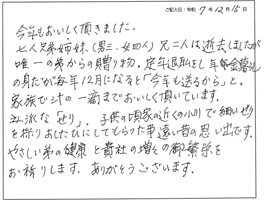 ご記入日:令和 7年 12月 15日
今年もおいしく頂きました。
七人兄弟姉妹、(男三、女四人)兄二人は逝去しましたが
唯一の弟からの贈り物。定年退私をし年金暮らし
の身だが毎年12月になると「今年も送るから」と。
家族で汁の一滴までおいしく頂いています。
立派な「せり」。子供の頃家の近くの小川で細いせり
を採りおしたひにしてもらった事遠い昔の思い出です。
やさしい弟の健康と貴社の増々の御繁栄を
お祈りします。ありがとうございます。